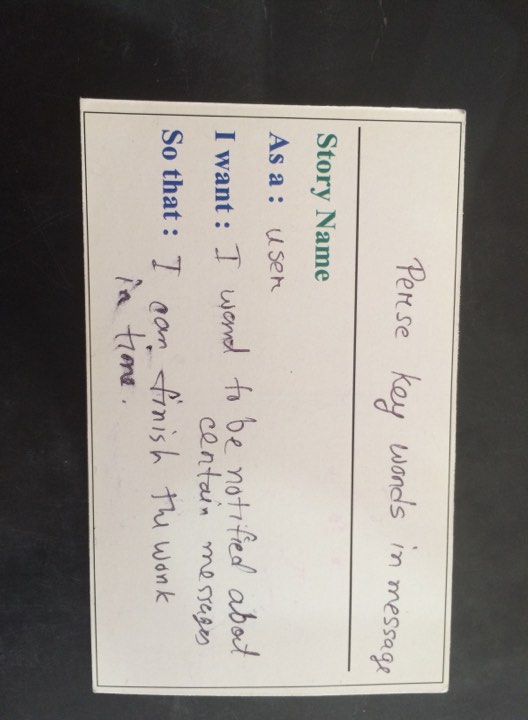 Perse key words in message
Story Name
As a : user
I want : I want to be notified about
certain messages
So that : I can finish the work
in time.